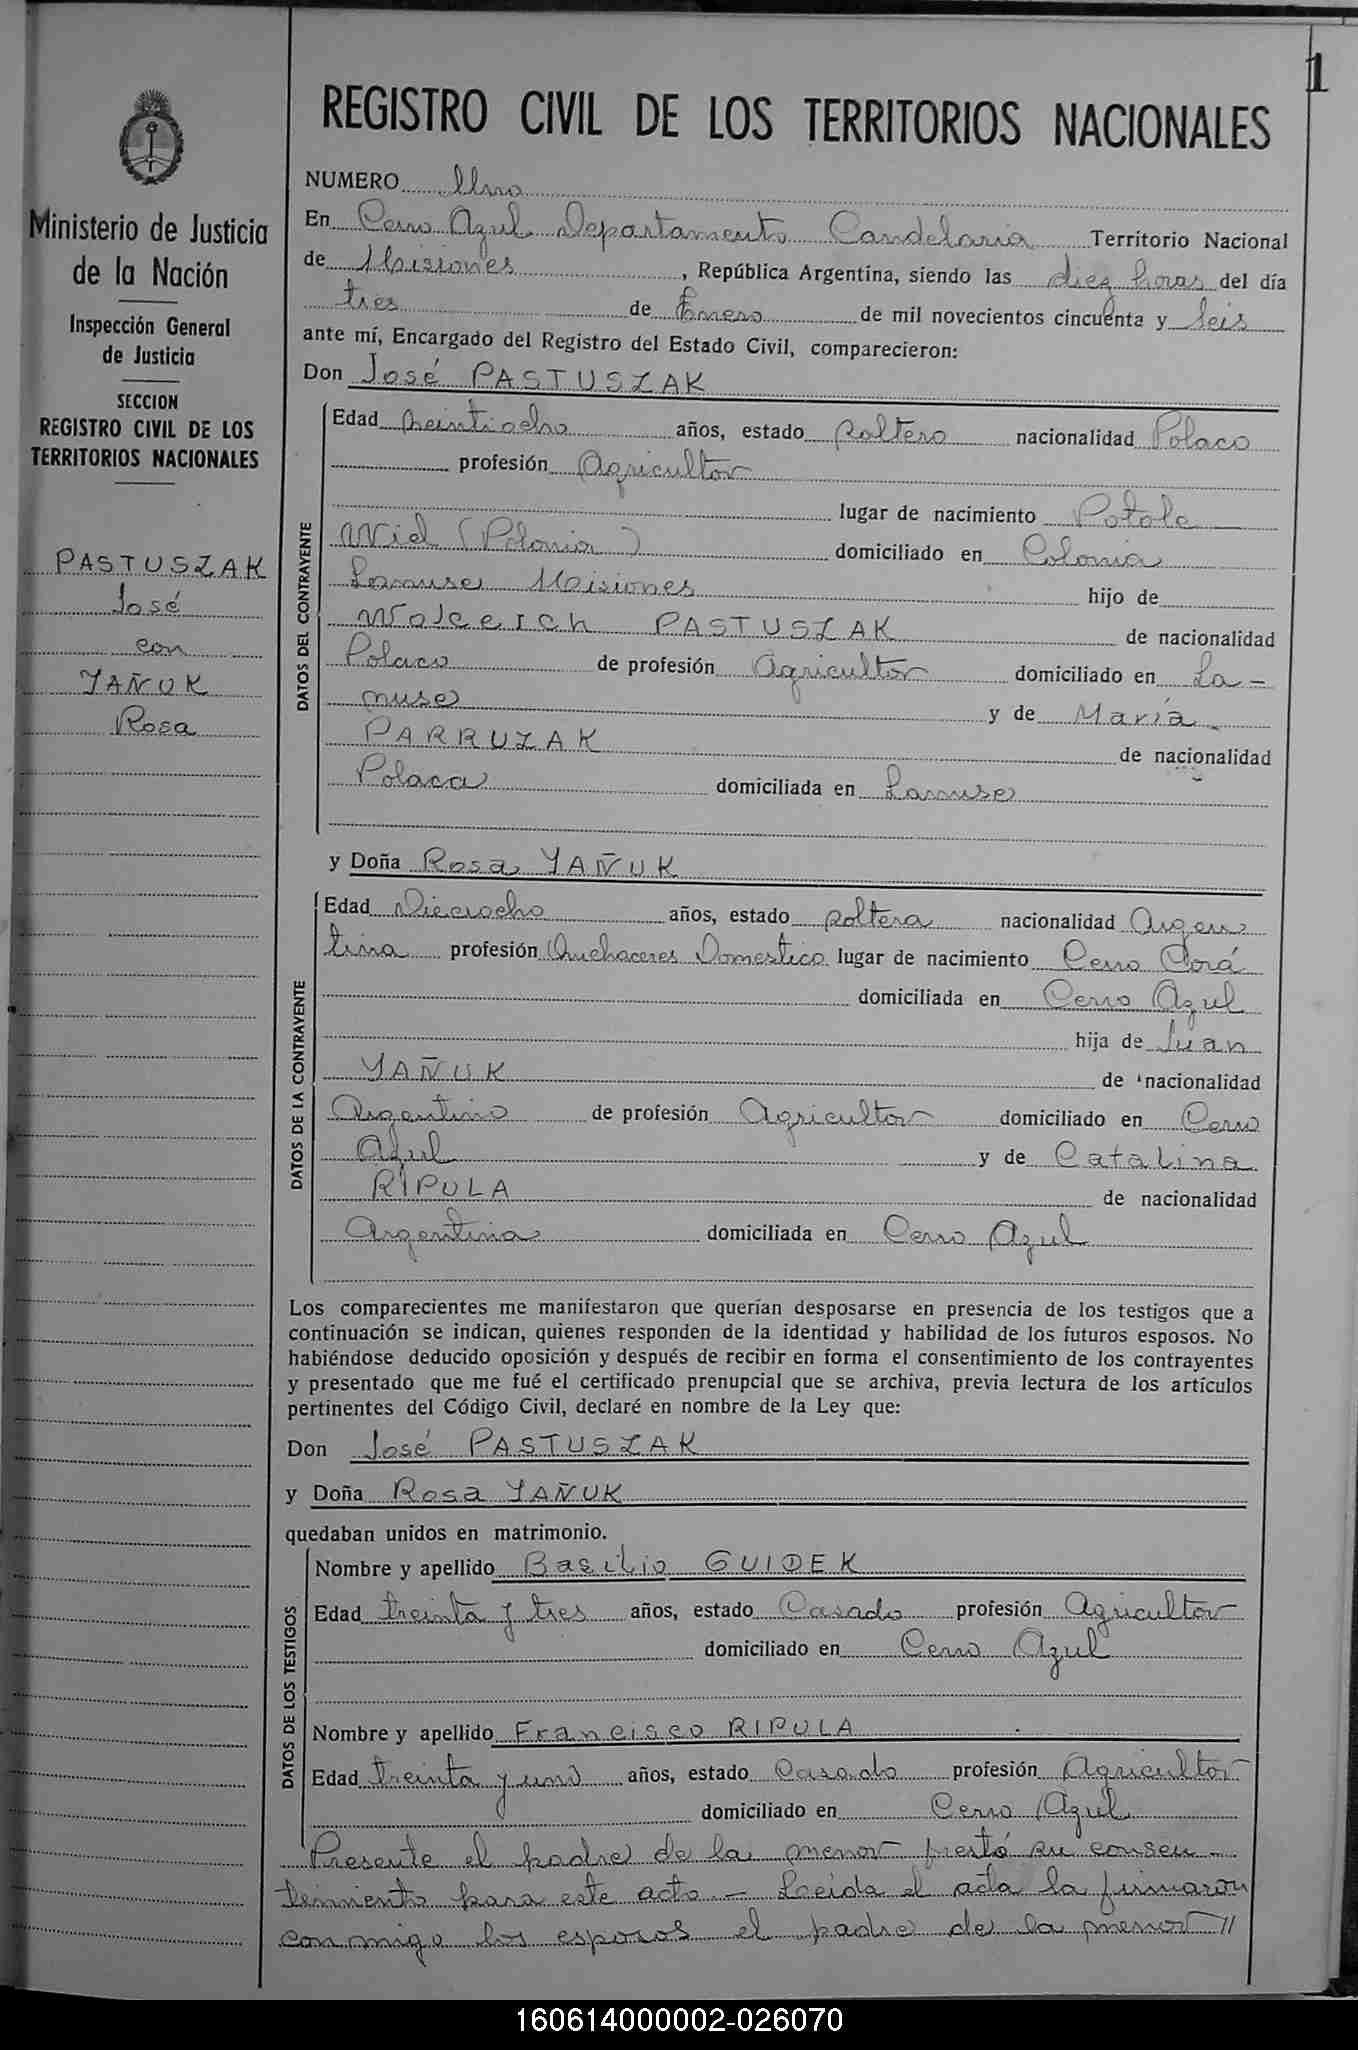 1
REGISTRO CIVIL DE LOS TERRITORIOS NACIONALES
Ministerio de Justicia
de la Nación
Inspección General
de Justicia
SECCION
REGISTRO CIVIL DE LOS
TERRITORIOS NACIONALES
PASTUSZAK
José
con
YAÑUK
Rosa
NUMERO Uno
En Cerro Azul Departamento Candelaria Territorio Nacional
de Misiones, República Argentina, siendo las diez horas del día
tres de Enero de mil novecientos cincuenta y seis
ante mí, Encargado del Registro del Estado Civil, comparecieron:
Don José PASTUSZAK
DATOS DEL CONTRAYENTE
Edad veintiocho años, estado soltero nacionalidad Polaco
profesión Agricultor
lugar de nacimiento Potole
Wiel (Polonia) domiciliado en Colonia
Lamuse Misiones hijo de
Wolceich PASTUSZAK de nacionalidad
Polaco de profesión Agricultor domiciliado en La-
muse y de María
PARRUZAK de nacionalidad
Polaca domiciliada en Lamuse
y Doña Rosa YAÑUK
DATOS DE LA CONTRAYENTE
Edad Dieciocho años, estado soltera nacionalidad Argen
tina profesión Quehaceres Domestico lugar de nacimiento Cerro Corá
domiciliada en Cerro Azul
hija de Juan
YAÑUK de nacionalidad
Argentino de profesión Agricultor domiciliado en Cerro
Azul y de Catalina
RIPULA de nacionalidad
Argentina domiciliada en Cerro Azul
Los comparecientes me manifestaron que querían desposarse en presencia de los testigos que a
continuación se indican, quienes responden de la identidad y habilidad de los futuros esposos. No
habiéndose deducido oposición y después de recibir en forma el consentimiento de los contrayentes
y presentado que me fué el certificado prenupcial que se archiva, previa lectura de los artículos
pertinentes del Código Civil, declaré en nombre de la Ley que:
Don José PASTUSZAK
y Doña Rosa YAÑUK
quedaban unidos en matrimonio.
DATOS DE LOS TESTIGOS
Nombre y apellido Basilio GUIDEK
Edad treinta y tres años, estado Casado profesión Agricultor
domiciliado en Cerro Azul
Nombre y apellido Francisco RIPULA
Edad treinta y uno años, estado Casado profesión Agricultor
domiciliado en Cerro Azul
Presente el padre de la menor prestó su consen-
timiento para este acto - Leida el acta la firmaron
conmigo los esposos el padre de la menor //
160614000002-026070